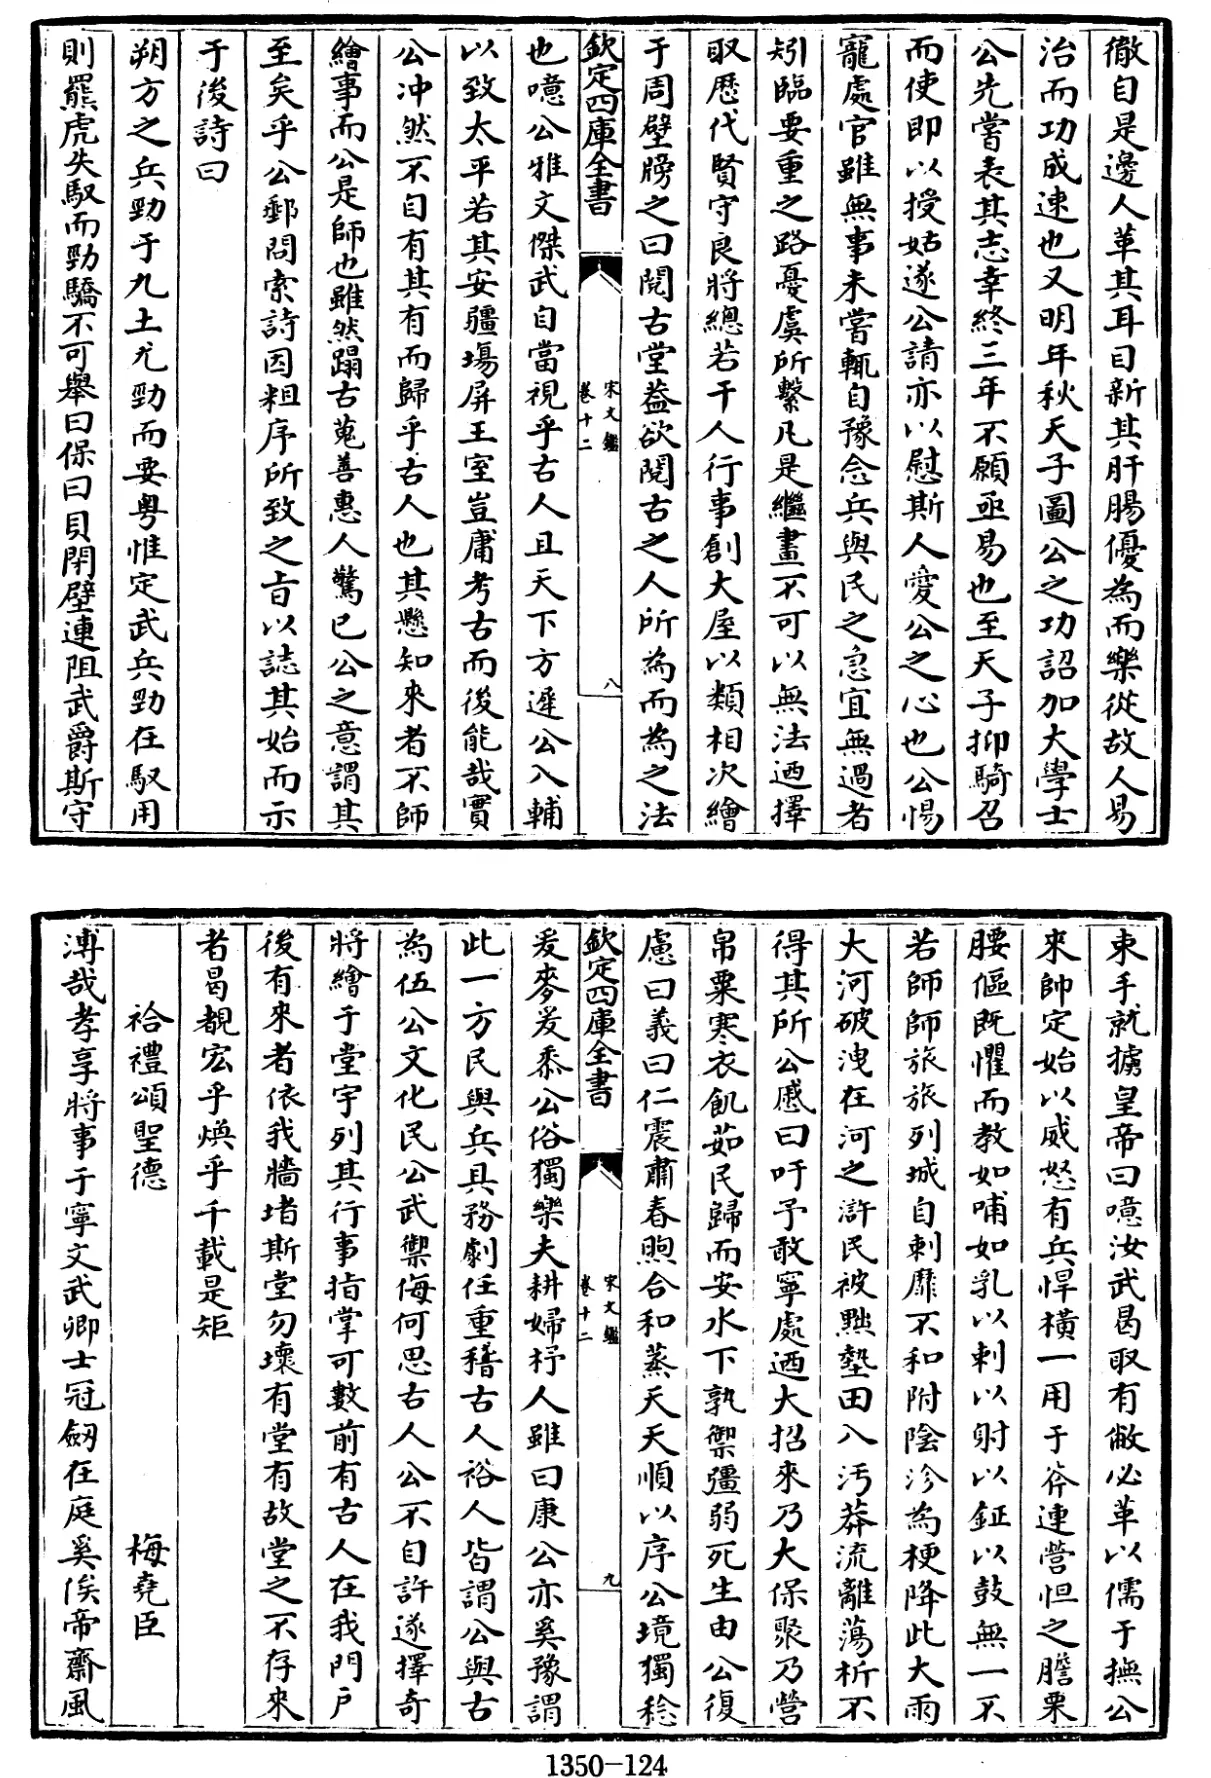 徹自是邊人革其耳目新其肝腸優為而樂從故人易
治而功成速也又明年秋天子圖公之功詔加大學士
公先嘗表其志幸終三年不願亟易也至天子抑騎召
而使即以授姑遂公請亦以慰斯人愛公之心也公惕
寵處官雖無事未嘗輒自豫念兵與民之急宜無過者
矧臨要重之路憂虞所繫凡是繼畫不可以無法迺擇
取歷代賢守良將總若干人行事創大屋以類相次繪
于周壁牓之曰閱古堂葢欲閱古之人所為而為之法
欽定四庫全書
宋文鑑
卷十二
八
也噫公雅文傑武自當視乎古人且天下方遲公入輔
以致太平若其安疆埸屏王室豈庸考古而後能哉實
公沖然不自有其有而歸乎古人也其懸知來者不師
繪事而公是師也雖然蹋古蒐善惠人驚已公之意謂其
至矣乎公郵問索詩因粗序所致之旨以誌其始而示
于後詩曰
朔方之兵勁于九土尤勁而要粤惟定武兵勁在馭用
則羆虎失馭而勁驕不可舉曰保曰貝閉壁連阻武爵斯守
束手就擄皇帝曰噫汝武曷取有敝必革以儒于撫公
來帥定始以威怒有兵悍橫一用于斧連營怛之膽栗
腰傴既懼而教如哺如乳以刺以射以鉦以鼓無一不
若師師旅旅列城自刺靡不和附陰沴為梗降此大雨
大河破洩在河之滸民被㸃墊田入汚莽流離蕩析不
得其所公慼曰吁予敢寧處迺大招來乃大保聚乃營
帛粟寒衣飢茹民歸而安水下孰禦彊弱死生由公復
慮曰義曰仁震肅春煦合和蒸天天順以序公境獨稔
欽定四庫全書
宋文鑑
卷十二
九
爰麥爰黍公俗獨樂夫耕婦杼人雖曰康公亦奚豫謂
此一方民與兵具務劇任重稽古人裕人皆謂公與古
為伍公文化民公武禦侮何思古人公不自許遂擇奇
將繪于堂宇列其行事指掌可數前有古人在我門户
後有來者依我牆堵斯堂勿壞有堂有故堂之不存來
者曷覩宏乎煥乎千載是矩
祫禮頌聖德
梅堯臣
溥哉孝享將事于寧文武卿士冠劔在庭奚俟帝齋風
1350-124